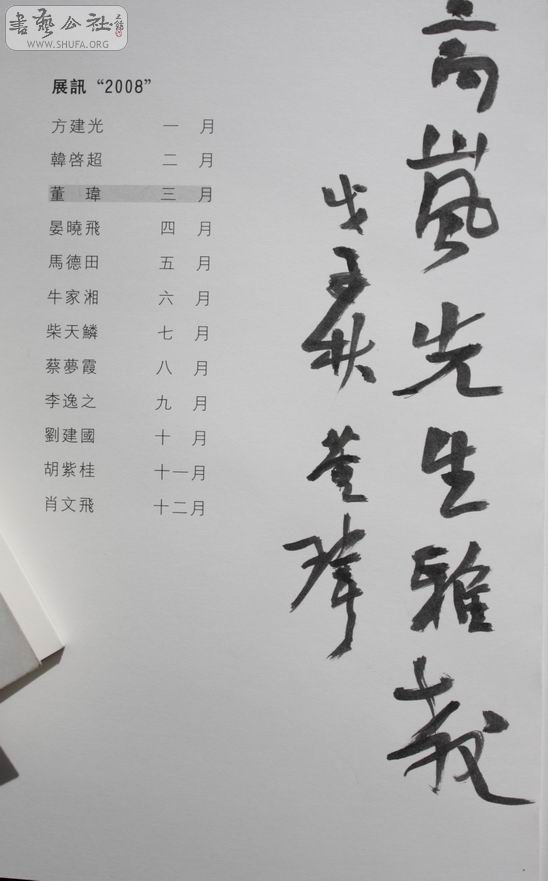 書藝公社
WWW.SHUFA.ORG
展訊“2008”
方建光 一月
韓啓超 二月
董瑋 三月
晏曉飛 四月
馬德田 五月
牛家湘 六月
柴天鱗 七月
蔡夢霞 八月
李逸之 九月
劉建國 十月
胡紫桂 十一月
肖文飛 十二月
高嵐先生雅教
戊子秋 董瑋